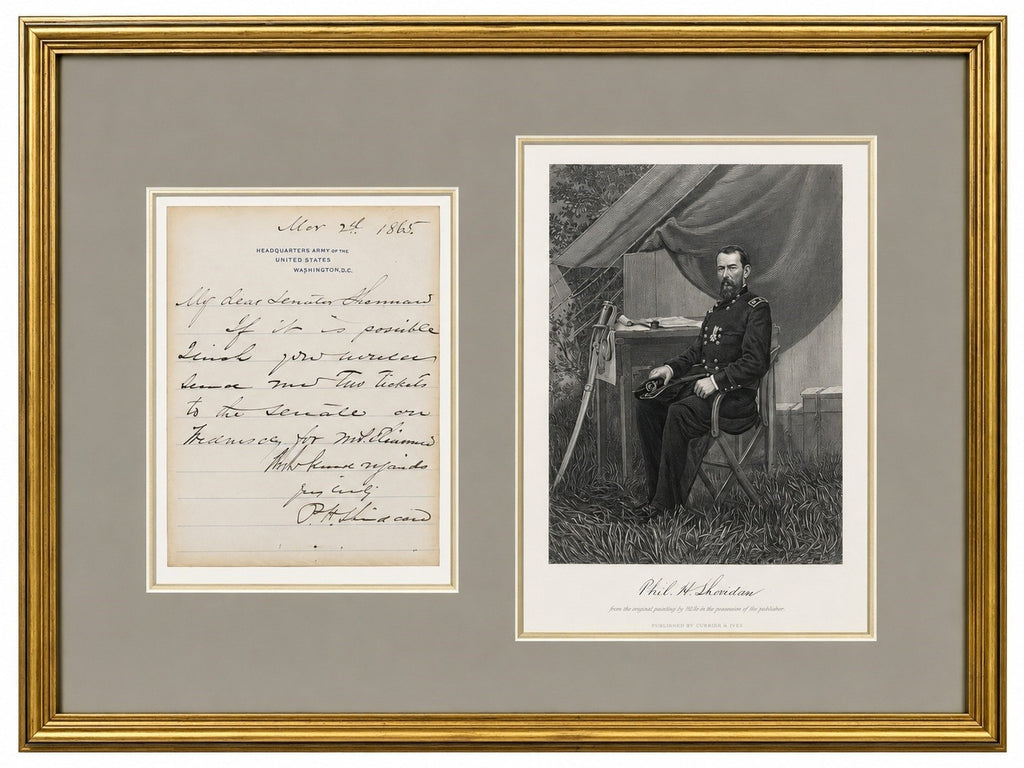 Mar 2d 1865.
HEADQUARTERS ARMY OF THE
UNITED STATES
WASHINGTON, D.C.
My dear Senator Shermard
If it is possible
I wish you would
send me two tickets
to the senate on
for
With kind regards
P. H.
Phil. H. Shovidan
from the original painting by in the possession of the publisher.
PUBLISHED BY CURRIER & IVES